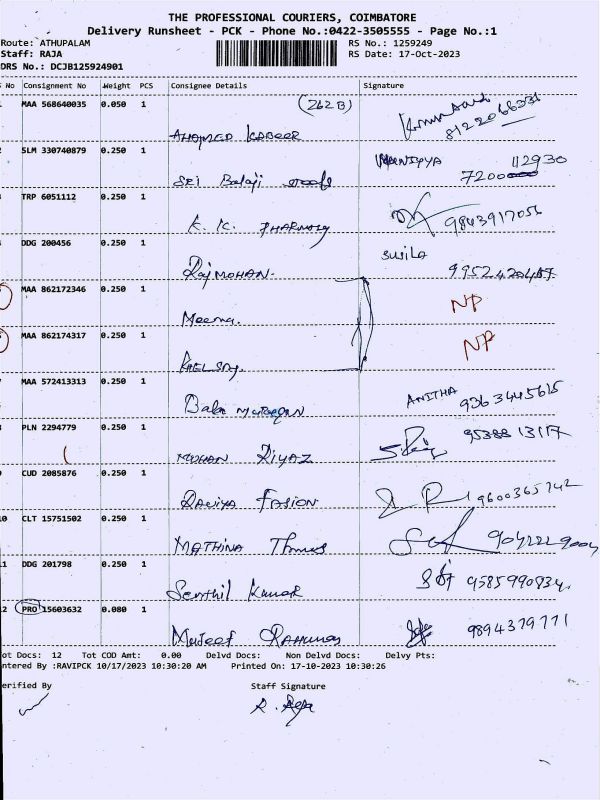 THE PROFESSIONAL COURIERS, COIMBATORE
Delivery Runsheet - PCK - Phone No.:0422-3505555 - Page No.:1
Route: ATHUPALAM RS No.: 1259249
Staff: RAJA RS Date: 17-Oct-2023
DRS No.: DCJB125924901
No Consignment No Weight PCS Consignee Details Signature
MAA 568640035 0.050 1 (262B)
AHAMED KABEER
SLM 330740879 0.250 1 112930
SRI Balaji 7200
TRP 6051112 0.250 1
K. K. PHARMACY 9843917056
DDG 200456 0.250 1 sujila
RajMOHAN. 9952420487
MAA 862172346 0.250 1 NP
Meena.
MAA 862174317 0.250 1 NP
MAA 572413313 0.250 1 ANITHA 9363445615
Bala MURUGAN
PLN 2294779 0.250 1 9538813117
MOHAN RIYAZ
CUD 2085876 0.250 1 9600365742
RAVIYA FASION
CLT 15751502 0.250 1
MATHINA
DDG 201798 0.250 1 9585990834
Senthil Kumar
PRO 15603632 0.080 1 9894379771
ot Docs: 12 Tot COD Amt: 0.00 Delvd Docs: Non Delvd Docs: Delvy Pts:
ntered By :RAVIPCK 10/17/2023 10:30:20 AM Printed On: 17-10-2023 10:30:26
erified By Staff Signature